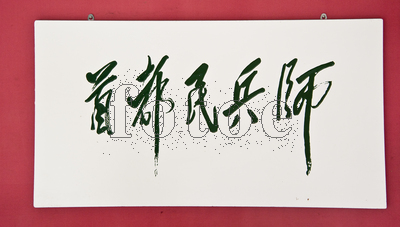 首都民兵师
fotoe